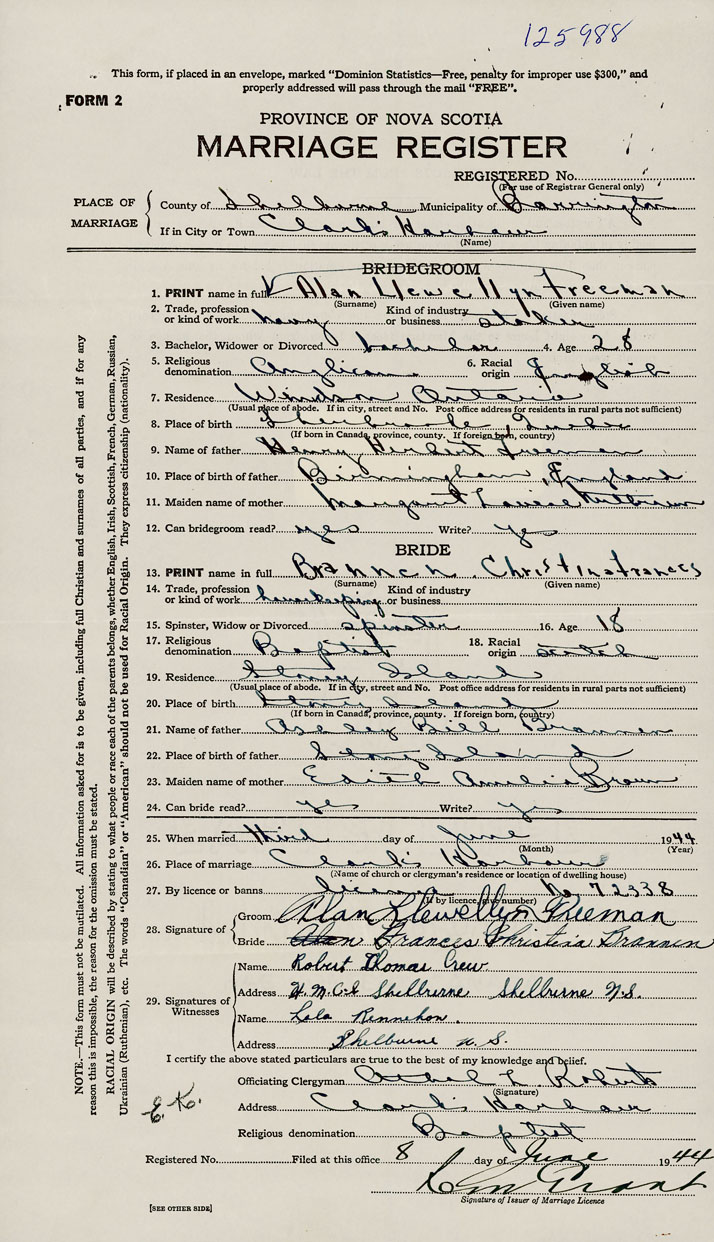 125988
This form, if placed in an envelope, marked "Dominion Statistics—Free, penalty for improper use $300," and
properly addressed will pass through the mail "FREE".
FORM 2
PROVINCE OF NOVA SCOTIA
MARRIAGE REGISTER
REGISTERED No.
(For use of Registrar General only)
PLACE OF MARRIAGE
County of Shelburne Municipality of Barrington
If in City or Town Clark's Harbour
(Name)
BRIDEGROOM
1. PRINT name in full Alan Llewellyn Freeman
(Surname) (Given name)
2. Trade, profession or kind of work navy Kind of industry or business stoker
3. Bachelor, Widower or Divorced bachelor 4. Age 28
5. Religious denomination Anglican 6. Racial origin English
7. Residence Windsor Ontario
(Usual place of abode. If in city, street and No. Post office address for residents in rural parts not sufficient)
8. Place of birth Sherbrooke Quebec
(If born in Canada, province, county. If foreign born, country)
9. Name of father Henry Herbert Freeman
10. Place of birth of father Birmingham, England
11. Maiden name of mother Margaret Louise
12. Can bridegroom read? yes Write? yes
BRIDE
13. PRINT name in full Brannen Christina Frances
(Surname) (Given name)
14. Trade, profession or kind of work housekeeping Kind of industry or business
15. Spinster, Widow or Divorced spinster 16. Age 18
17. Religious denomination Baptist 18. Racial origin scotch
19. Residence Stoney Island
(Usual place of abode. If in city, street and No. Post office address for residents in rural parts not sufficient)
20. Place of birth Stoney Island
(If born in Canada, province, county. If foreign born, country)
21. Name of father Bill Brannen
22. Place of birth of father Stony Island
23. Maiden name of mother Edith Amelia Brown
24. Can bride read? yes Write? yes
25. When married third day of June 1944
(Month) (Year)
26. Place of marriage Clark's Harbour
(Name of church or clergyman's residence or location of dwelling house)
27. By licence or banns license No 72338
(If by licence, give number)
28. Signature of
Groom Alan Llewellyn Freeman
Bride Alan Frances Christina Brannen
29. Signatures of Witnesses
Name Robert Thomas Crew
Address H.M.C.S Shelburne Shelburne N.S.
Name Lola
Address Shelburne N.S.
I certify the above stated particulars are true to the best of my knowledge and belief.
Officiating Clergyman L. Roberts
(Signature)
Address Clark's Harbour
E.K.
Religious denomination Baptist
Registered No. Filed at this office 8 day of June 1944
Grant
Signature of Issuer of Marriage Licence
[SEE OTHER SIDE]
NOTE.—This form must not be mutilated. All information asked for is to be given, including full Christian and surnames of all parties, and if for any
reason this is impossible, the reason for the omission must be stated.
RACIAL ORIGIN will be described by stating to what people or race each of the parents belongs, whether English, Irish, Scottish, French, German, Russian,
Ukrainian (Ruthenian), etc. The words "Canadian" or "American" should not be used for Racial Origin. They express citizenship (nationality).